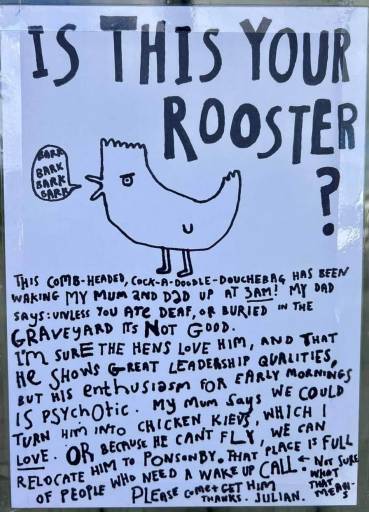 IS THIS YOUR
ROOSTER
?
BARK
BARK
BARK
BARK
THIS COMB-HEADED, COCK-A-DOODLE-DOUCHEBAG HAS BEEN
WAKING MY MUM AND DAD UP AT 3AM! MY DAD
SAYS: UNLESS YOU ARE DEAF, OR BURIED IN THE
GRAVEYARD ITS NOT GOOD.
I'M SURE THE HENS LOVE HIM, AND THAT
HE SHOWS GREAT LEADERSHIP QUALITIES,
BUT HIS enthusiasm FOR EARLY MORNINGS
IS PSYCHOTIC. MY MUM SAYS WE COULD
TURN HIM INTO CHICKEN KIEVS, WHICH I
LOVE. OR BECAUSE HE CANT FLY, WE CAN
RELOCATE HIM TO PONSONBY. THAT PLACE IS FULL
OF PEOPLE WHO NEED A WAKE UP CALL. ← NOT SURE
WHAT
THAT
MEANS
PLEASE COME + GET HIM
THANKS. JULIAN.